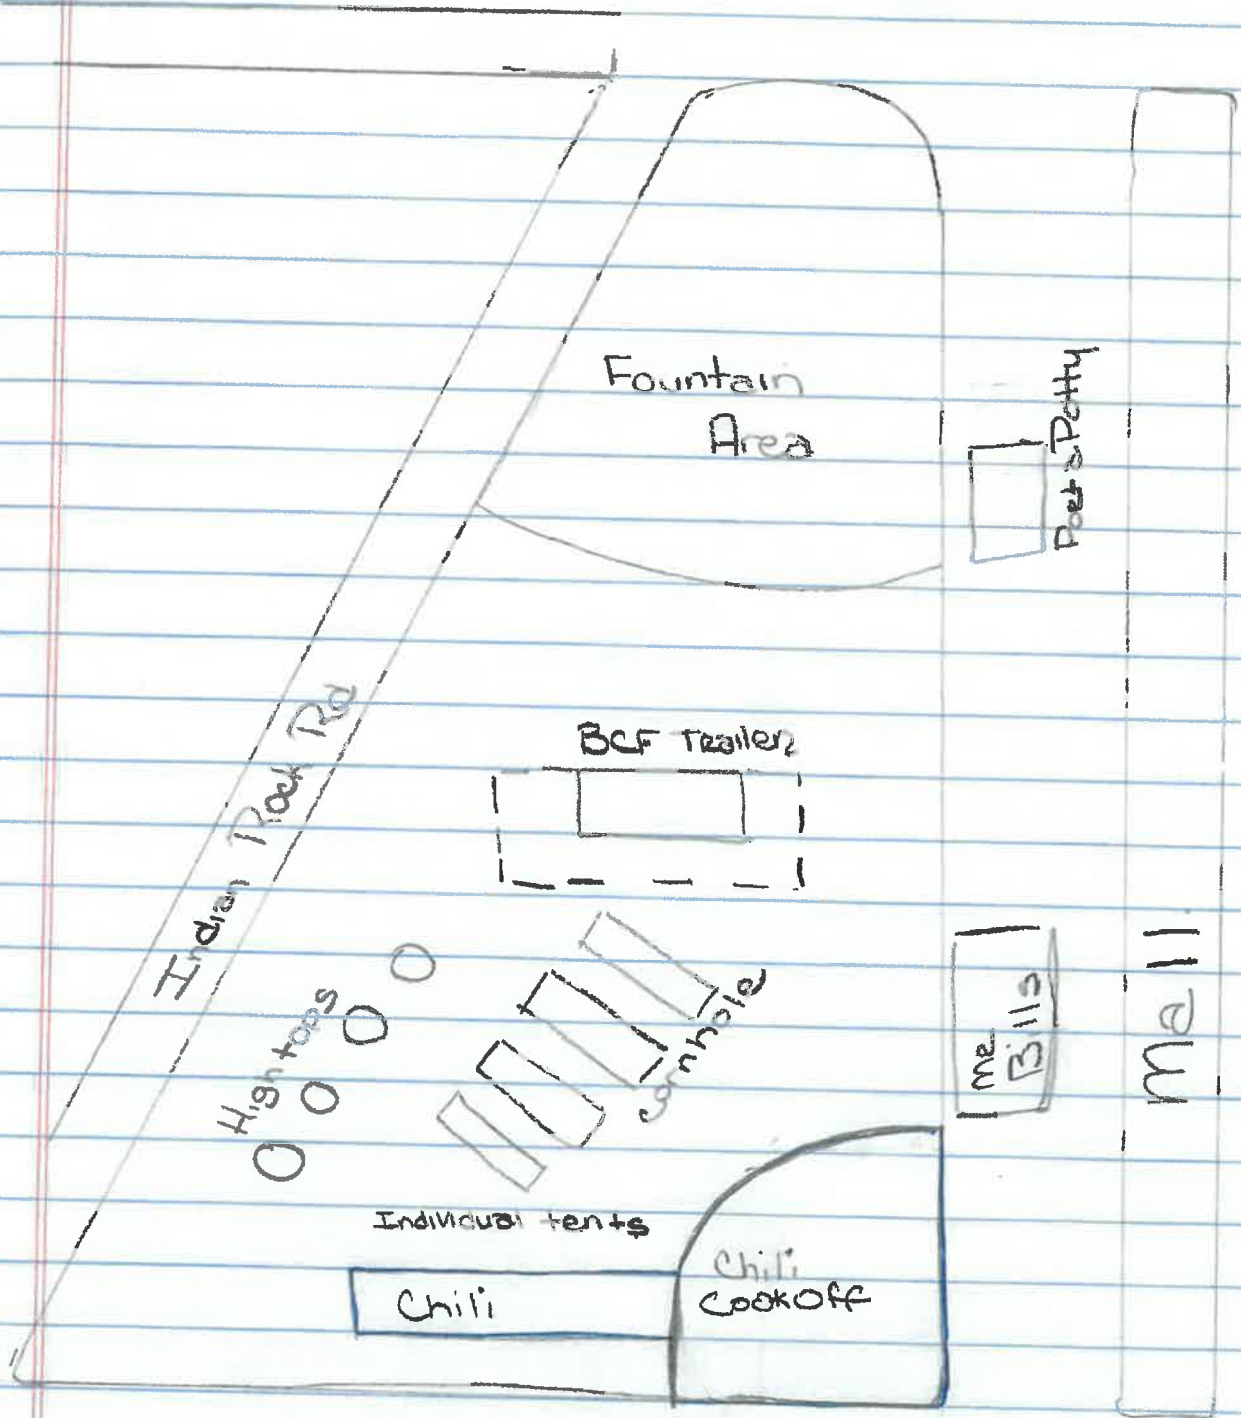 Fountain
Area
Port a Potty
Indian Rock Rd
BCF Trailer
Hightops
Cornhole
me
Bills
Mall
Individual tents
Chili
Chili
CookOff